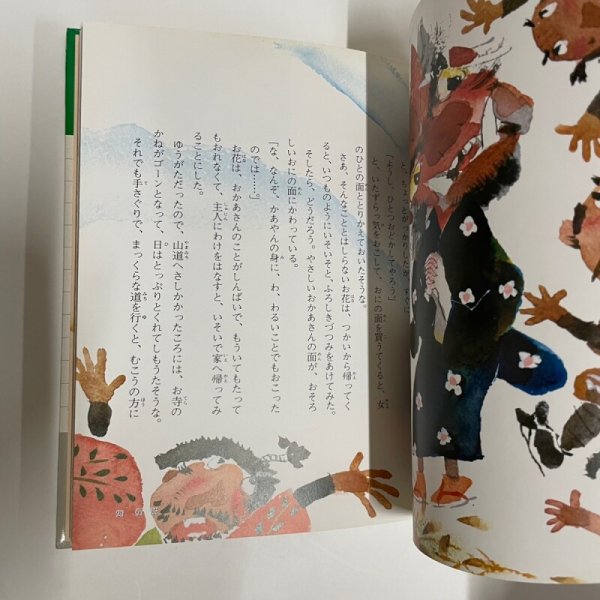 と、ちょっとがっかりしたが、すぐに、
「ようし、ひとつおどかしてやろう。」
と、いたずらっ気をおこして、おにの面を買うてくると、女
のひとの面ととりかえておいたそうな。
さあ、そんなこととはしらないお花は、つかいから帰ってく
ると、いつものようにいそいそと、ふろしきづつみをあけてみた。
そしたら、どうだろう。やさしいおかあさんの面が、おそろ
しいおにの面にかわっている。
「な、なんぞ、かあやんの身に、わ、わるいことでもおこった
のでは……。」
お花は、おかあさんのことがしんぱいで、もういてもたって
もおれなくて、主人にわけをはなすと、いそいで家へ帰ってみ
ることにした。
ゆうがただったので、山道へさしかかったころには、お寺の
かねがゴーンとなって、日はとっぷりとくれてしもうたそうな。
それでも手さぐりで、まっくらな道を行くと、むこうの方に